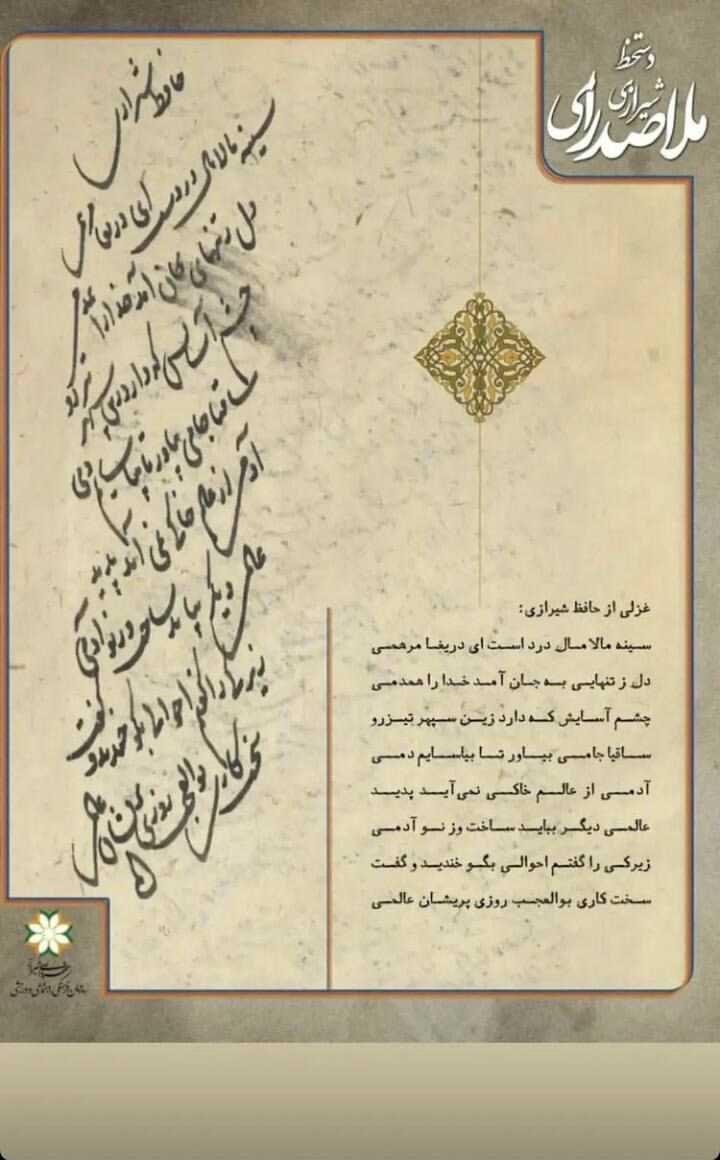 دستخط
ملاصدرای
شیرازی
حافظ شیرازی
سینه مالامال درد است ای دریغا مرهمی
دل ز تنهایی بجان آمد خدا را همدمی
چشم آسایش که دارد زین سپهر تیزرو
ساقیا جامی بیاور تا بیاسایم دمی
آدمی از عالم خاکی نمی آید پدید
عالمی دیگر بباید ساخت وز نو آدمی
زیرکی را گفتم احوالی بگو خندید و گفت
سخت کاری بوالعجب روزی پریشان عالمی
غزلی از حافظ شیرازی:
سینه مالامال درد است ای دریغا مرهمی
دل ز تنهایی به جان آمد خدا را همدمی
چشم آسایش که دارد زین سپهر تیزرو
ساقیا جامی بیاور تا بیاسایم دمی
آدمی از عالم خاکی نمی‌آید پدید
عالمی دیگر بباید ساخت وز نو آدمی
زیرکی را گفتم احوالی بگو خندید و گفت
سخت کاری بوالعجب روزی پریشان عالمی